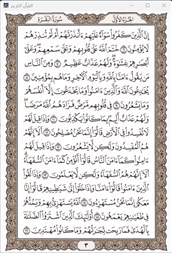 القرآن الكريم
الجُزْءُ الأَوَّلُ سُورَةُ البَقَرَةِ
إِنَّ ٱلَّذِينَ كَفَرُواْ سَوَآءٌ عَلَيْهِمْ ءَأَنذَرْتَهُمْ أَمْ لَمْ تُنذِرْهُمْ
لَا يُؤْمِنُونَ ٦ خَتَمَ ٱللَّهُ عَلَىٰ قُلُوبِهِمْ وَعَلَىٰ سَمْعِهِمْ وَعَلَىٰٓ
أَبْصَٰرِهِمْ غِشَٰوَةٌ وَلَهُمْ عَذَابٌ عَظِيمٌ ٧ وَمِنَ ٱلنَّاسِ
مَن يَقُولُ ءَامَنَّا بِٱللَّهِ وَبِٱلْيَوْمِ ٱلْأَخِرِ وَمَا هُم بِمُؤْمِنِينَ ٨
يُخَٰدِعُونَ ٱللَّهَ وَٱلَّذِينَ ءَامَنُواْ وَمَا يَخْدَعُونَ إِلَّآ أَنفُسَهُمْ
وَمَا يَشْعُرُونَ ٩ فِي قُلُوبِهِم مَّرَضٌ فَزَادَهُمُ ٱللَّهُ مَرَضًا
وَلَهُمْ عَذَابٌ أَلِيمٌ بِمَا كَانُواْ يَكْذِبُونَ ١٠ وَإِذَا قِيلَ لَهُمْ
لَا تُفْسِدُواْ فِي ٱلْأَرْضِ قَالُوٓاْ إِنَّمَا نَحْنُ مُصْلِحُونَ ١١ أَلَآ إِنَّهُمْ
هُمُ ٱلْمُفْسِدُونَ وَلَٰكِن لَّا يَشْعُرُونَ ١٢ وَإِذَا قِيلَ لَهُمْ
ءَامِنُواْ كَمَآ ءَامَنَ ٱلنَّاسُ قَالُوٓاْ أَنُؤْمِنُ كَمَآ ءَامَنَ ٱلسُّفَهَآءُ
أَلَآ إِنَّهُمْ هُمُ ٱلسُّفَهَآءُ وَلَٰكِن لَّا يَعْلَمُونَ ١٣ وَإِذَا لَقُواْ ٱلَّذِينَ
ءَامَنُواْ قَالُوٓاْ ءَامَنَّا وَإِذَا خَلَوْاْ إِلَىٰ شَيَٰطِينِهِمْ قَالُوٓاْ إِنَّا
مَعَكُمْ إِنَّمَا نَحْنُ مُسْتَهْزِءُونَ ١٤ ٱللَّهُ يَسْتَهْزِئُ بِهِمْ وَيَمُدُّهُمْ
فِي طُغْيَٰنِهِمْ يَعْمَهُونَ ١٥ أُوْلَٰٓئِكَ ٱلَّذِينَ ٱشْتَرَوُاْ ٱلضَّلَٰلَةَ
بِٱلْهُدَىٰ فَمَا رَبِحَت تِّجَٰرَتُهُمْ وَمَا كَانُواْ مُهْتَدِينَ ١٦
٣